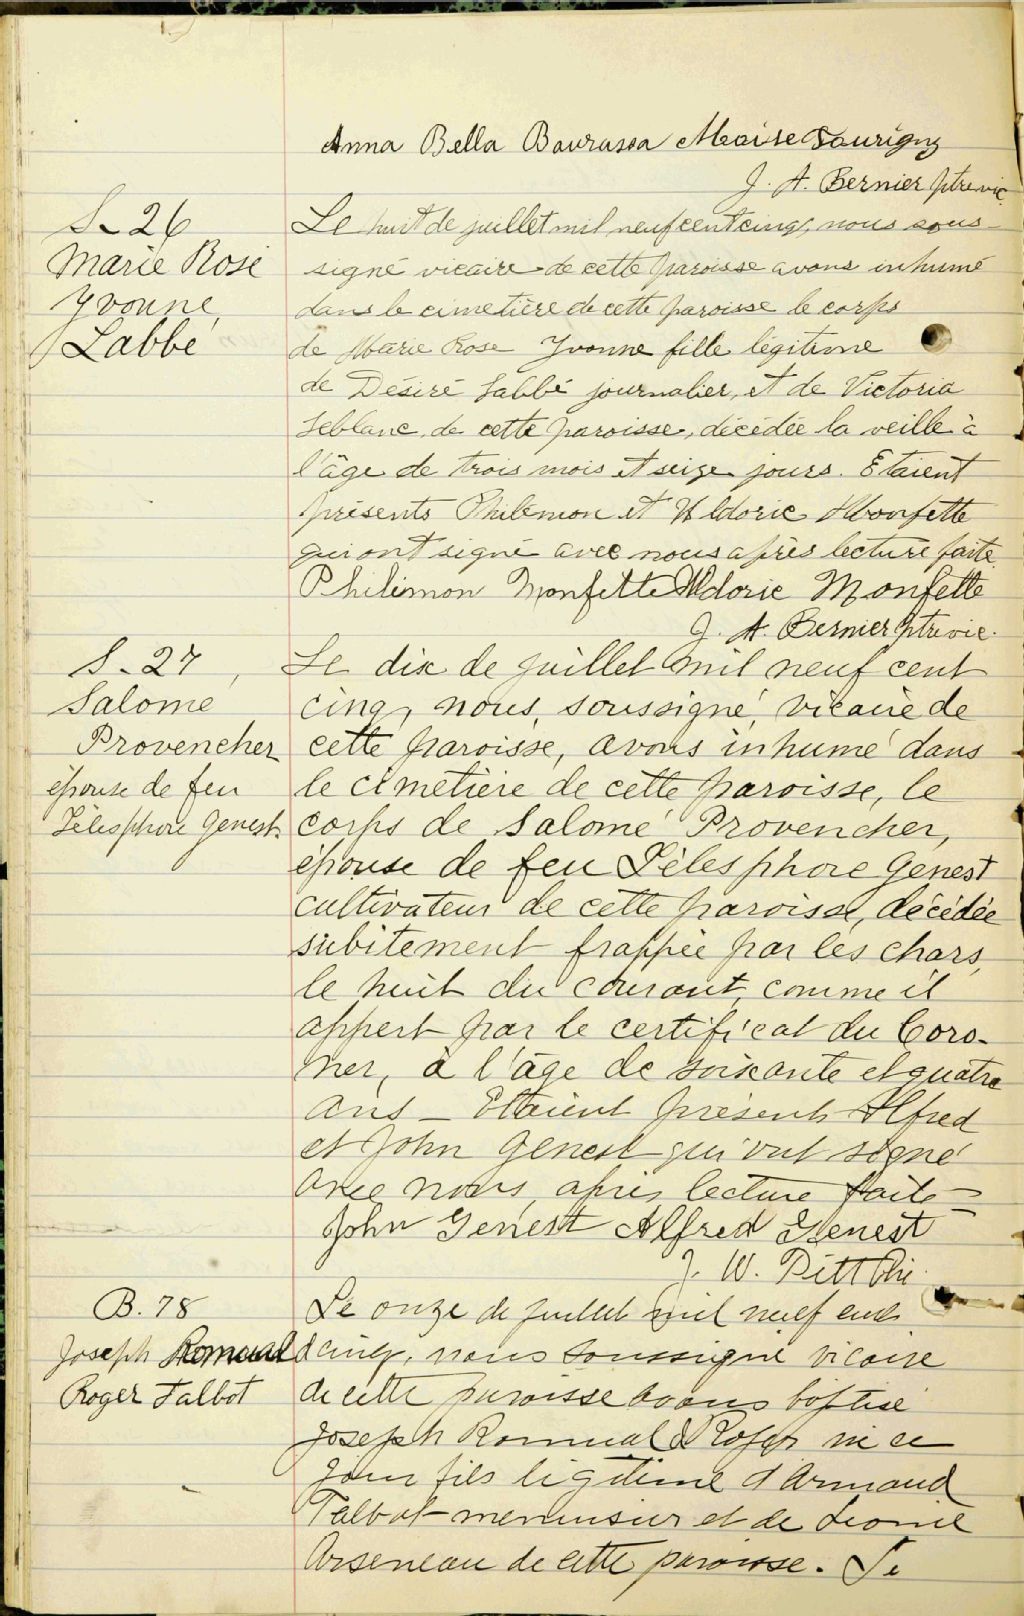 Anna Bella Bourassa Moise Tourigny
J. A. Bernier ptre vic.
S-26
Marie Rose
Yvonne
Labbé
Le huit de juillet mil neuf cent cinq, nous sous-
signé vicaire de cette paroisse avons inhumé
dans le cimetière de cette paroisse le corps
de Marie Rose Yvonne fille légitime
de Désiré Labbé journalier, et de Victoria
Leblanc, de cette paroisse, décédée la veille à
l'âge de trois mois et seize jours. Etaient
présents Philémon et Aldoric Monfette
qui ont signé avec nous après lecture faite.
Philémon Monfette Aldoric Monfette
J. A. Bernier ptre vic.
S-27
Salomé
Provencher
épouse de feu
Télesphore Genest
Le dix de juillet mil neuf cent
cinq, nous, soussigné, vicaire de
cette paroisse, avons inhumé dans
le cimetière de cette paroisse, le
corps de Salomé Provencher,
épouse de feu Télesphore Genest
cultivateur de cette paroisse, décédée
subitement frappée par les chars,
le huit du courant, comme il
appert par le certificat du Coro-
ner, à l'âge de soixante et quatre
ans - Etaient présents Alfred
et John Genest qui ont signé
avec nous, après lecture faite -
John Genest Alfred Genest
J. W. Pitt
B. 78
Joseph Romuald
Roger Talbot
Le onze de juillet mil neuf cent
cinq, nous soussigné vicaire
de cette paroisse avons baptisé
Joseph Romuald Roger né ce
jour fils légitime d'Armand
Talbot menuisier et de Léonie
Arseneau de cette paroisse. Le